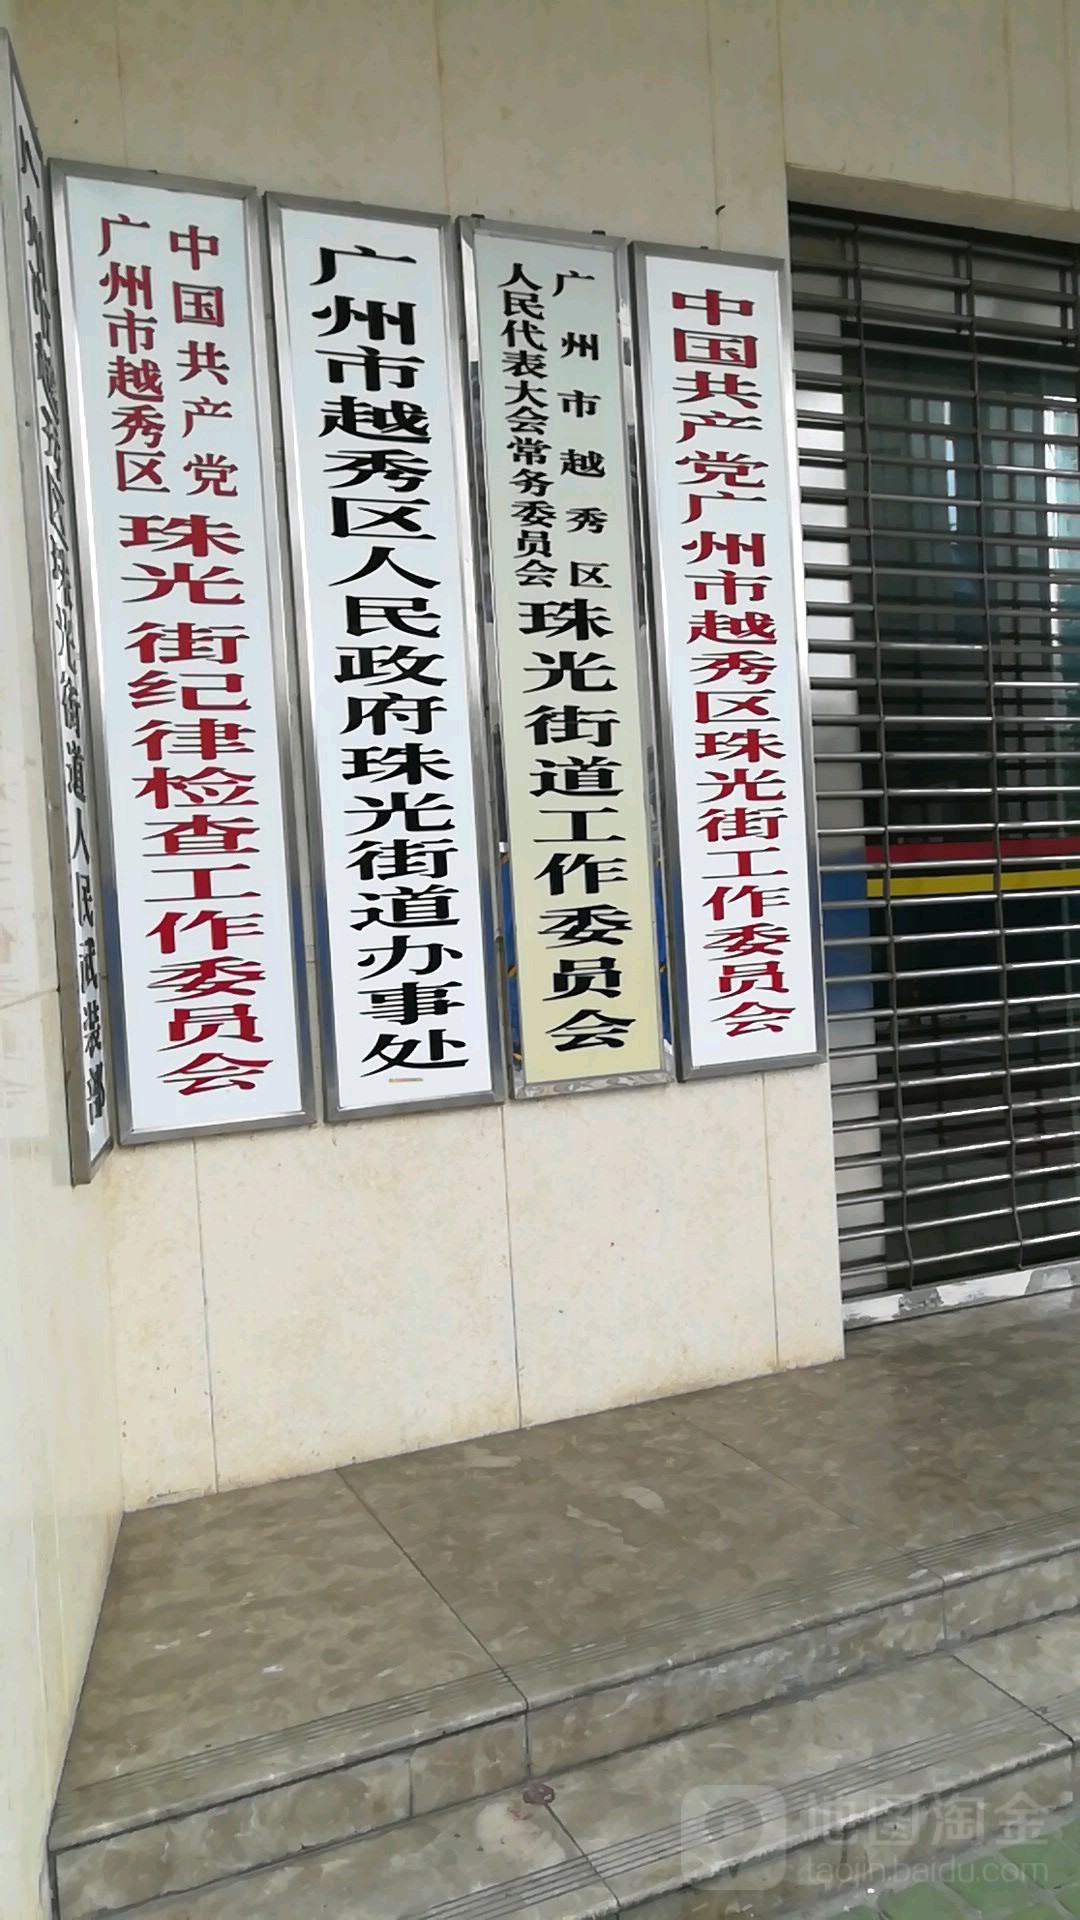 中国共产党广州市越秀区珠光街工作委员会
广州市越秀区
人民代表大会常务委员会
珠光街道工作委员会
广州市越秀区人民政府珠光街道办事处
中国共产党
广州市越秀区
珠光街纪律检查工作委员会
广州市越秀区珠光街道人民武装部
地图淘金
taojin.baidu.com